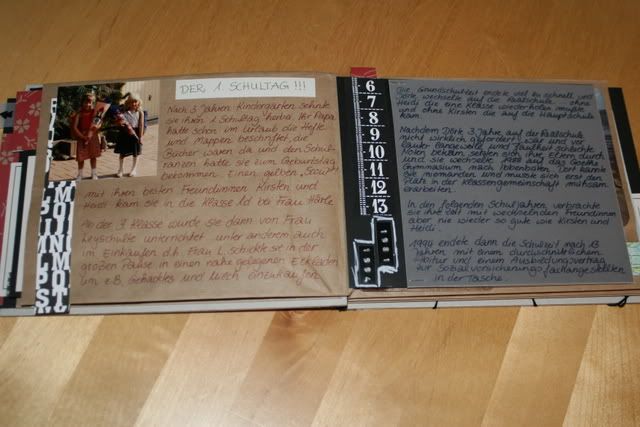 DER 1. SCHULTAG !!!
Nach 3 Jahren Kindergarten sehnte
sie ihren 1. Schultag herbei. Ihr Papa
hatte schon im Urlaub die Hefte
und Mappen beschriftet, die
Bücher waren da und den Schul-
ranzen hatte sie zum Geburtstag
bekommen. Einen gelben „Scout".
mit ihren besten Freundinnen Kirsten und
Heidi kam sie in die Klasse 1d bei Frau Härle
Ab der 3. Klasse wurde sie dann von Frau
Leyschulte unterrichtet unter anderem auch
im Einkaufen d.h. Frau L. schickte sie in der
großen Pause in einen nahe gelegenen Eckladen
um z.B. Gehacktes und Milch einzukaufen.
6
7
8
9
10
11
12
13
Die Grundschulzeit endete viel zu schnell und
Dörte wechselte auf die Realschule ohne
Heidi die eine Klasse wiederholen mußte
und ohne Kirsten die auf die Hauptschule
kam.
Nachdem Dörte 3 Jahre auf der Realschule
nicht wirklich gefordert war und vor
lauter Langeweile und Faulheit schlechte
Noten bekam, setzten sich ihre Eltern durch
und sie wechselte auf das Goethe
Gymnasium nach Ibbenbüren. Dort kannte
sie niemanden und mußte sich erst den
Platz in der Klassengemeinschaft mühsam
erarbeiten.
In den folgenden Schuljahren verbrachte
sie ihre Zeit mit wechselnden Freundinnen
aber nie wieder so gute wie Kirsten und
Heidi.
1994 endete dann die Schulzeit nach 13
Jahren mit einem durchschnittlichem
Abitur und einem Ausbildungsvertrag
zur Sozialversicherungsfachangestellten
in der Tasche.